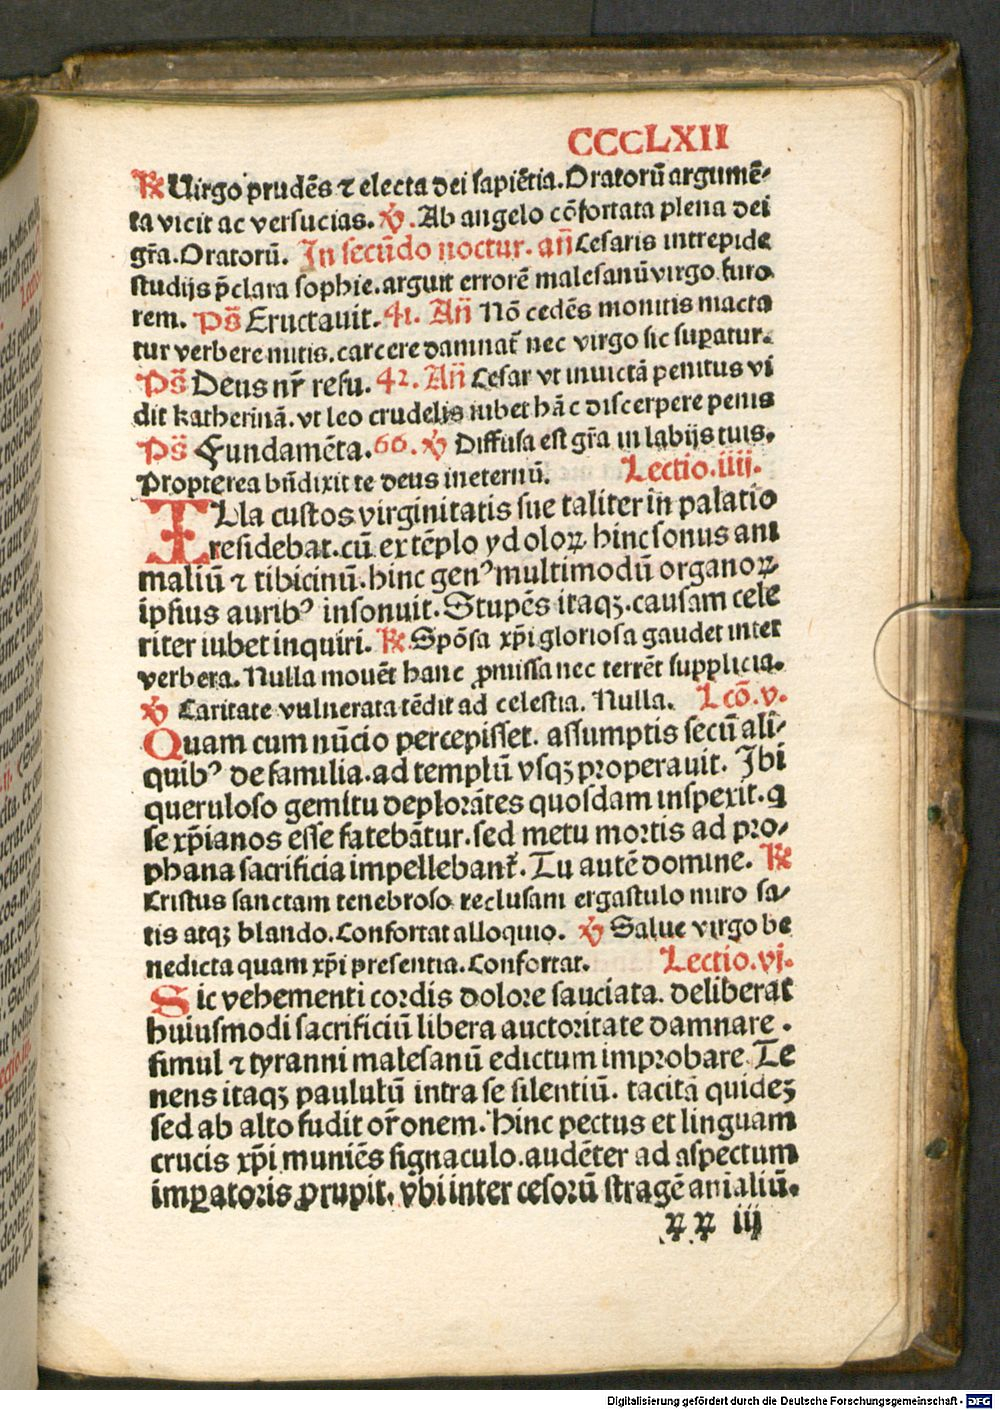 CCCLXII
℟ Uirgo prudẽs ⁊ electa dei sapiẽtia. Oratorũ argumẽ-
ta vicit ac versucias. ℣. Ab angelo cõfortata plena dei
gr̃a. Oratorũ. In secũdo noctur. añ Cesaris intrepide
studijs p̃clara sophie. arguit errorẽ malesanũ virgo furo
rem. Ps̃ Eructauit. 41. Añ Nõ cedẽs monitis macta
tur verbere mitis. carcere damnat̃ nec virgo sic suꝑatur.
Ps̃ Deus nr̃ refu. 42. Añ Cesar vt inuictã penitus vi
dit katherinã. vt leo crudelis iubet hãc discerpere penis
Ps̃ Fundamẽta. 66. ℣ Diffusa est gr̃a in labijs tuis.
Propterea bñdixit te deus in eternũ. Lectio. iiij.
Illa custos virginitatis sue taliter in palatio
residebat. cũ extẽplo ydoloꝝ hinc sonus ani
maliũ ⁊ tibicinũ. hinc genꝰ multimodũ organoꝝ
ipsius auribꝰ insonuit. Stupẽs itaqꝫ. causam cele
riter iubet inquiri. ℟. Spõsa xp̃i gloriosa gaudet inter
verbera. Nulla mouẽt hanc ꝓmissa nec terrẽt supplicia.
℣ Caritate vulnerata tẽdit ad celestia. Nulla. Lcõ. v.
Quam cum nũcio percepisset. assumptis secũ ali-
quibꝰ de familia. ad templũ vsqꝫ properauit. Ibi
queruloso gemitu deplorãtes quosdam inspexit. q
se xp̃ianos esse fatebãtur. sed metu mortis ad pro-
phana sacrificia impellebant̃. Tu autẽ domine. ℟
Cristus sanctam tenebroso reclusam ergastulo miro sa-
tis atqꝫ blando. Confortat alloquio. ℣ Salue virgo be
nedicta quam xp̃i presentia. Confortat. Lectio. vj.
Sic vehementi cordis dolore sauciata. deliberat
huiusmodi sacrificiũ libera auctoritate damnare .
simul ⁊ tyranni malesanũ edictum improbare Te
nens itaqꝫ paululũ intra se silentiũ. tacitã quideꝫ
sed ab alto fudit or̃onem. Hinc pectus et linguam
crucis xp̃i muniẽs signaculo. audẽter ad aspectum
imꝑatoris ꝓrupit. vbi inter cesorũ stragẽ anialiũ.
ꝝ ꝝ iij
Digitalisierung gefördert durch die Deutsche Forschungsgemeinschaft - DFG